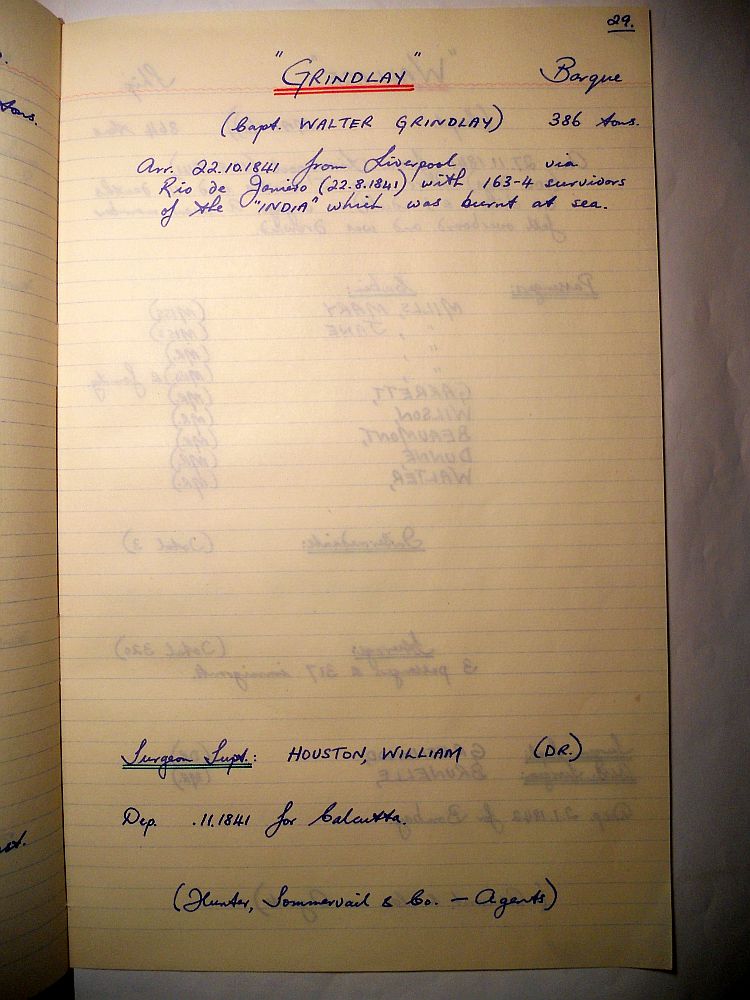 29.
"GRINDLAY" Barque
(Capt. WALTER GRINDLAY) 386 tons.
Arr. 22.10.1841 from Liverpool via
Rio de Janiero (22.8.1841) with 163-4 survivors
of the "INDIA" which was burnt at sea.
Surgeon Supt.: HOUSTON, WILLIAM (DR.)
Dep. .11.1841 for Calcutta.
(Hunter, Sommervail & Co. — Agents)
tons.